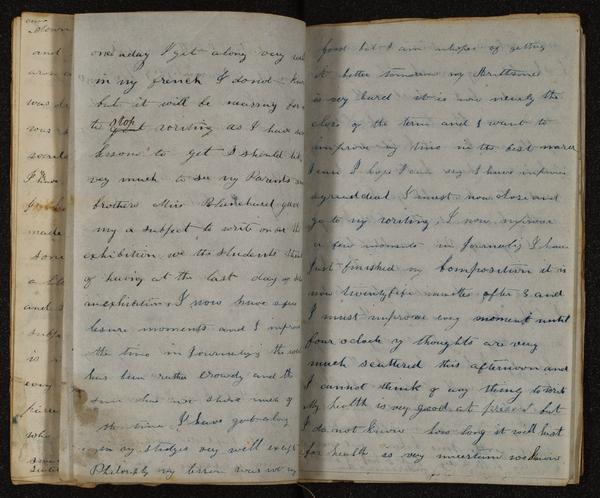 own
down
and
was d
was s
I have
made
some
a l
and s
subje
is
every
piece
who
one a day I get along very well
in my french I donot know
but it will be necessary for
to stop writing as I have
lessons to get I should like
very much to see my Parents and
brothers Miss Blanchard gave
my a subject to write on at the
exhibition we the students think
of having at the last day of
an exhibition, I now have a few
lesure moments and I improve
the time in Journaling the
has been rather Crowdy and the
sun has not shone much of
the time I have got along
in my studyes very well except
Philosiphy my lesson was not very
good but I am in hopes of getting
it better tomorrow my Arithmetic
is very hard it is now nearly the
close of the term and I want to
improve my time in the best maner
I can I hope I can say I have improved
a great deal I must now close and
go to my writing, I now improve
a few moments in Journaling I have
just finished my Composition it is
now twenty five minutes after 3 and
I must improve evry moment until
four oclock my thoughts are very
much scattered this afternoon and
I cannot think of any thing to write
My health is very good at present but
I do not know how long it will last
for health is very uncertain we know